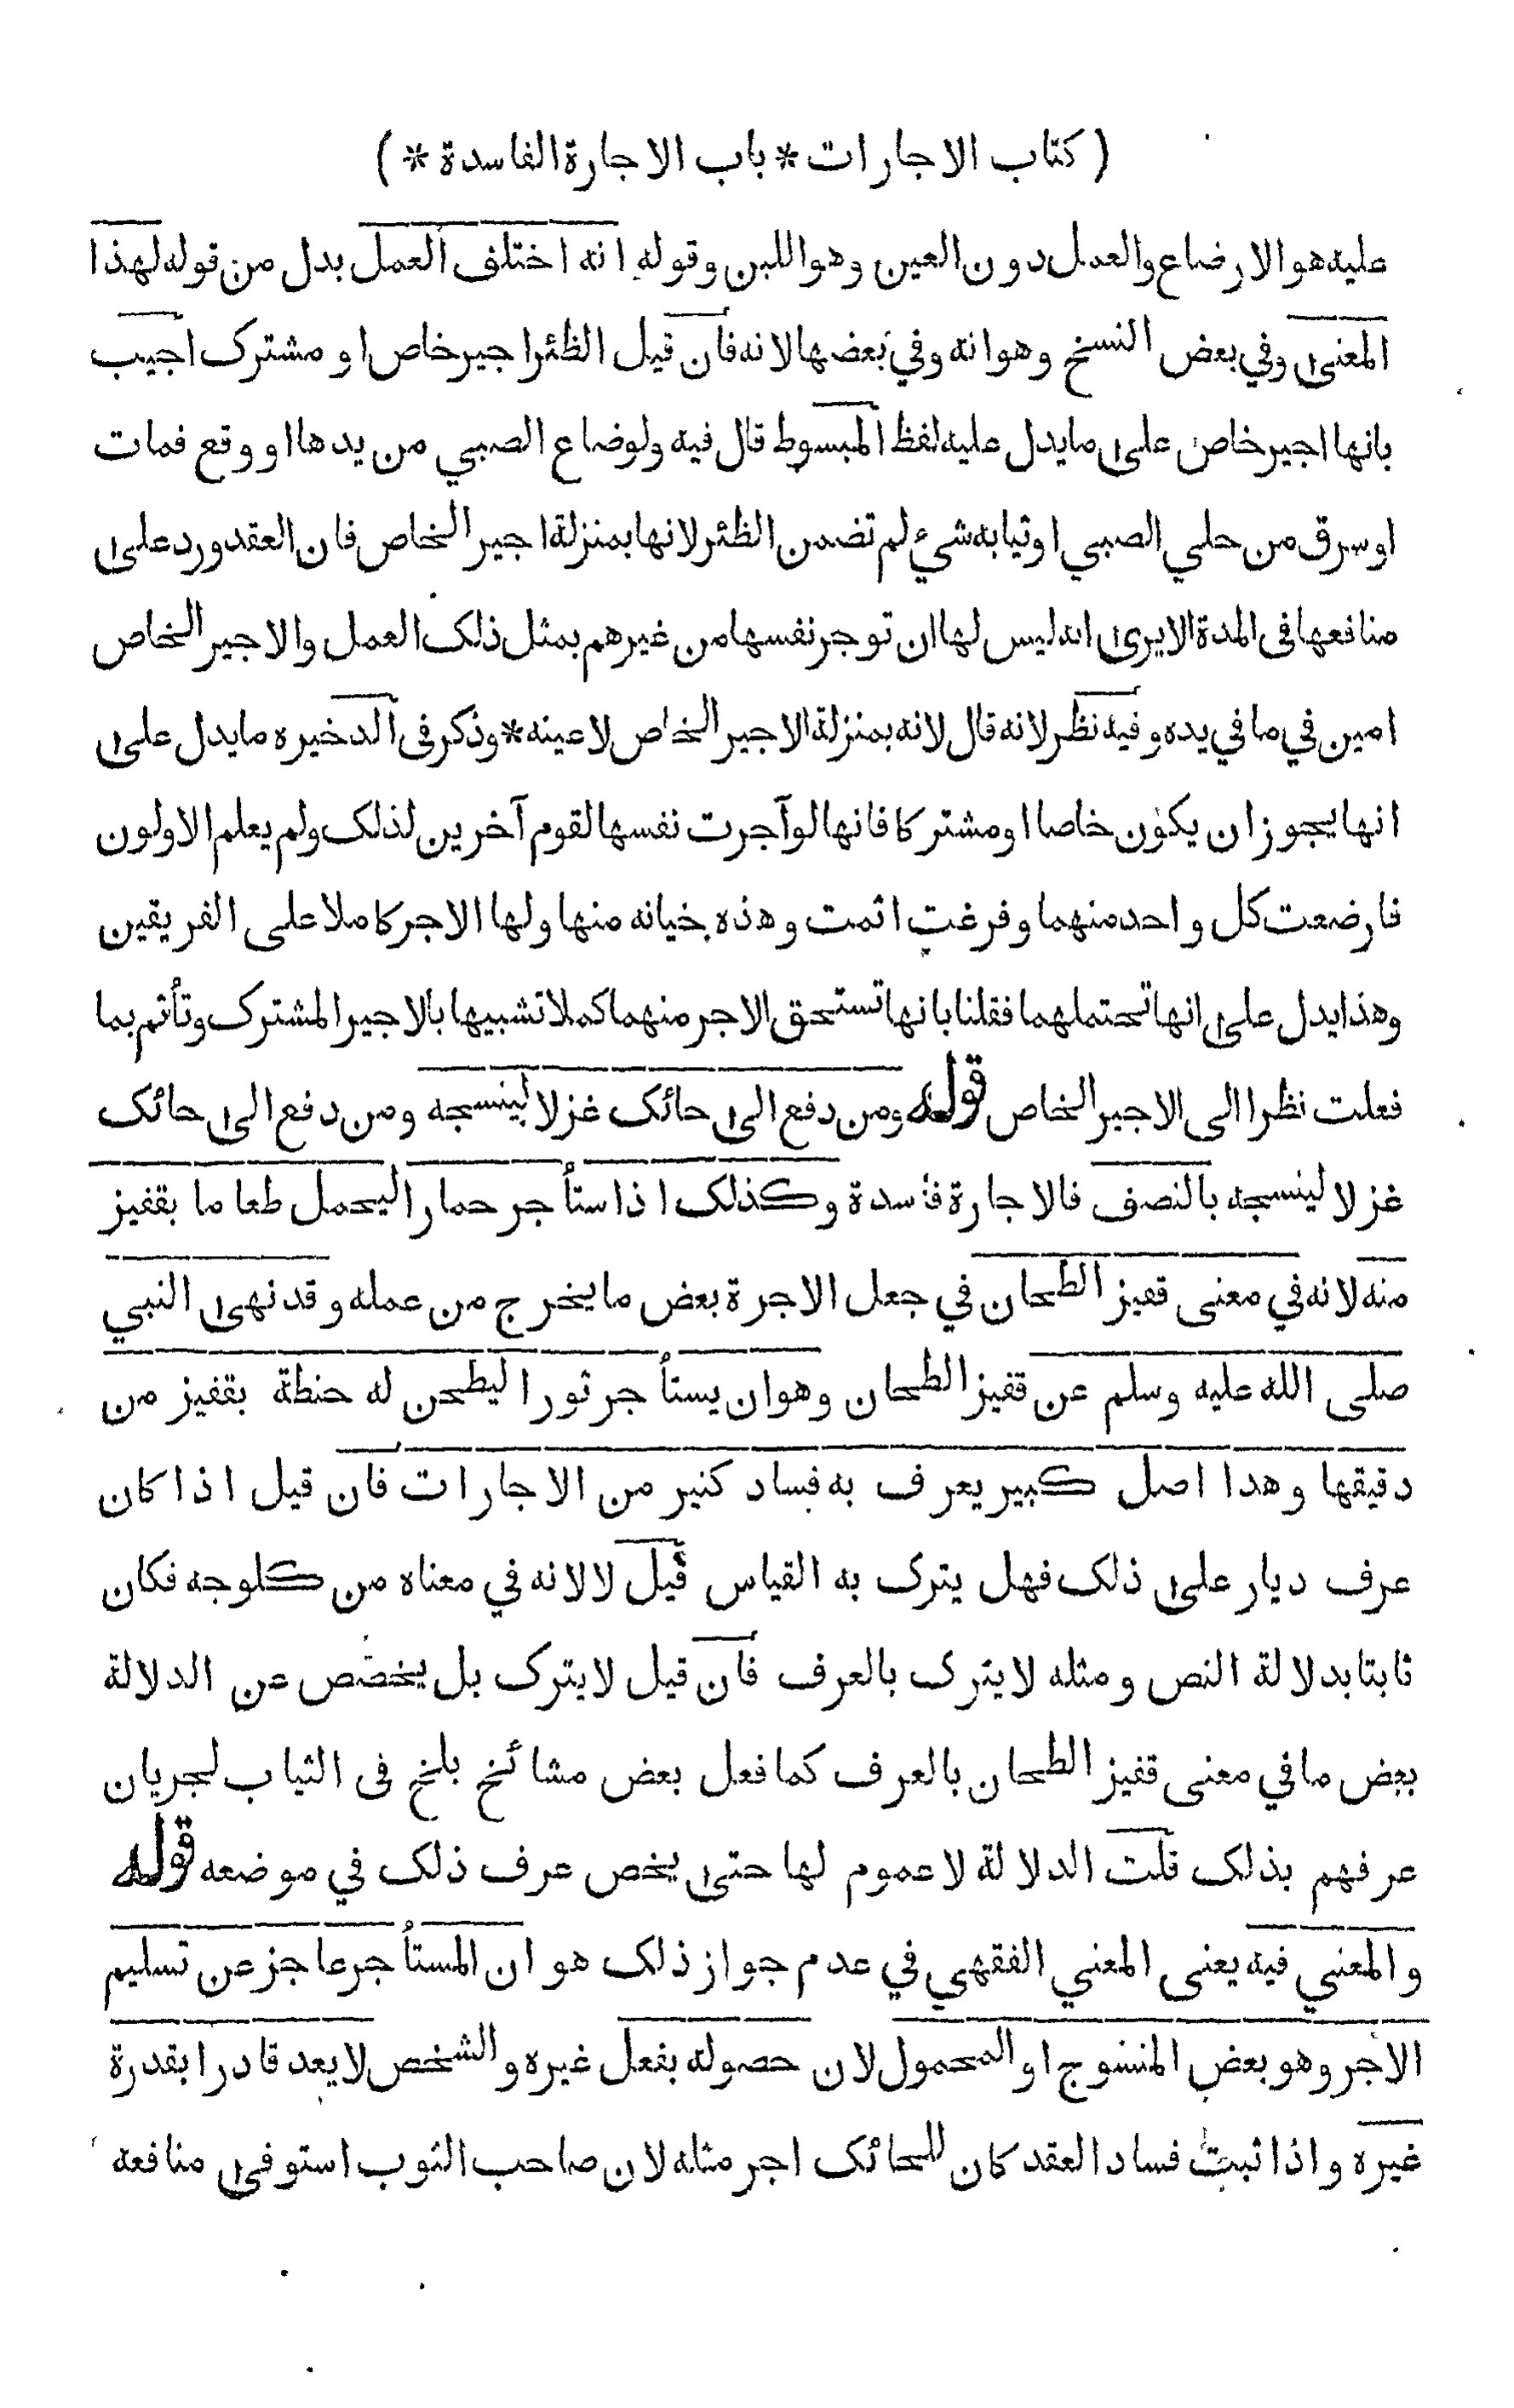 ( كتاب الاجارات * باب الاجارة الفاسدة * )
عليه هو الارضاع والعمل دون العين وهو اللبن وقوله انه اختلف العمل بدل من قوله لهذا
المعنى وفي بعض النسخ وهو انه وفي بعضها لانه فان قيل الظئر اجير خاص او مشترك اجيب
بانها اجير خاص على ما يدل عليه لفظ المبسوط قال فيه ولو ضاع الصبي من يدها او وقع فمات
او سرق من حلي الصبي او ثيابه شيء لم تضمن الظئر لانها بمنزلة اجير الخاص فان العقد ورد على
منافعها في المدة الا يرى انه ليس لها ان توجر نفسها من غيرهم بمثل ذلك العمل والاجير الخاص
امين في ما في يده وفيه نظر لانه قال لانه بمنزلة الاجير الخاص لا عينه * وذكر في الدخيرة ما يدل على
انها يجوز ان يكون خاصا او مشتركا فانها لو آجرت نفسها لقوم آخرين لذلك ولم يعلم الاولون
فارضعت كل واحد منهما وفرغت اثمت وهذه خيانه منها ولها الاجر كاملا على الفريقين
وهذا يدل على انها تحتملهما فقلنا بانها تستحق الاجر منهما كملا تشبيها بالاجير المشترك وتأثم بما
فعلت نظرا الى الاجير الخاص قوله ومن دفع الى حائك غزلا لينسجه ومن دفع الى حائك
غزلا لينسجه بالنصف فالاجارة فاسدة وكذلك اذا ستأجر حمارا ليحمل طعاما بقفيز
منه لانه في معنى قفيز الطحان في جعل الاجرة بعض ما يخرج من عمله وقد نهى النبي
صلى الله عليه وسلم عن قفيز الطحان وهو ان يستأجر ثورا ليطحن له حنطة بقفيز من
دقيقها وهدا اصل كبير يعرف به فساد كثير من الاجارات فان قيل اذا كان
عرف ديار على ذلك فهل يترك به القياس قيل لا لانه في معناه من كل وجه فكان
ثابتا بدلالة النص ومثله لا يترك بالعرف فان قيل لا يترك بل يخصص عن الدلالة
بعض ما في معنى قفيز الطحان بالعرف كما فعل بعض مشائخ بلخ في الثياب لجريان
عرفهم بذلك قلت الدلالة لا عموم لها حتى يخص عرف ذلك في موضعه قوله
والمعنى فيه يعنى المعني الفقهي في عدم جواز ذلك هو ان المستأجر عاجز عن تسليم
الاجر وهو بعض المنسوج او المحمول لان حصوله بفعل غيره والشخص لا يعد قادرا بقدرة
غيره واذا ثبت فساد العقد كان للحائك اجر مثله لان صاحب الثوب استوفى منافعه